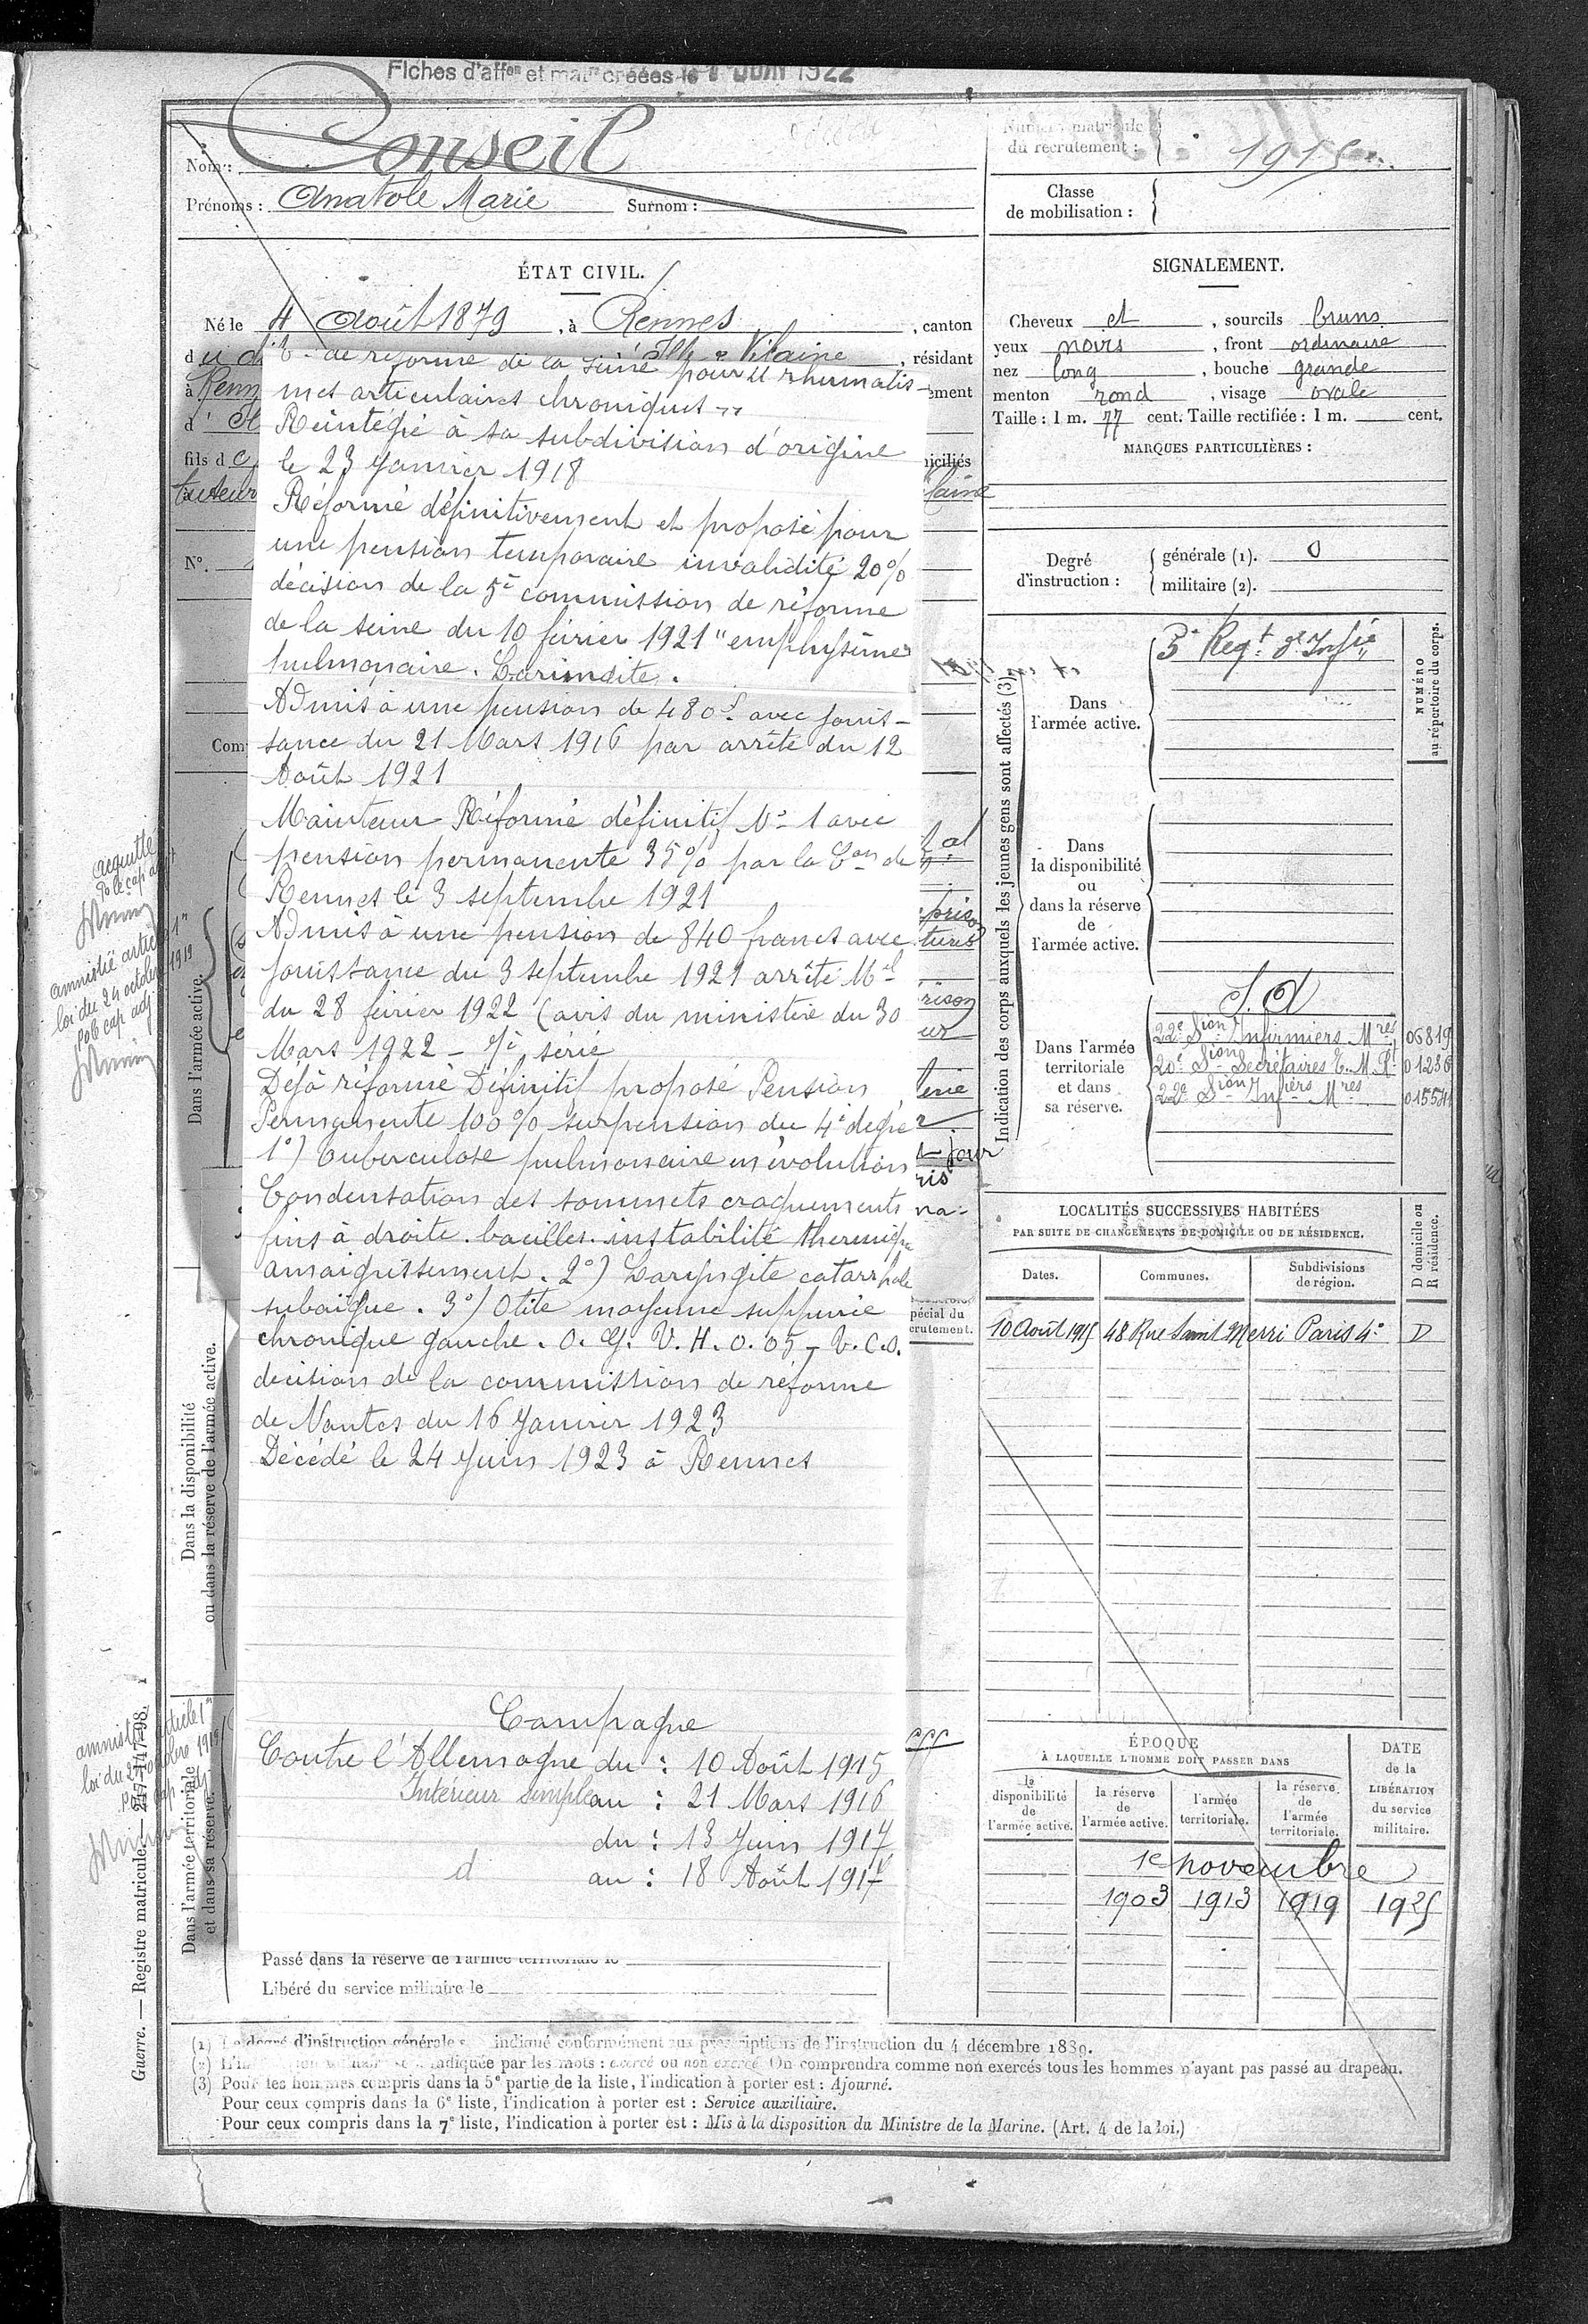 Fiches d'aff^on et mat^le créées le 1 Juin 1922
Conseil
Nom :
Prénoms : Anatole Marie Surnom :
Numéro matricule du recrutement : 1915
Classe de mobilisation :
ÉTAT CIVIL.
Né le 4 Août 1879, à Rennes, canton
du d Ille & Vilaine, résidant
à Renn
d'
fils d
tuteur
N°.
Com
C^on de réforme de la Seine pour « rhumatis-
mes articulaires chroniques »
Réintégré à sa subdivision d'origine
le 23 Janvier 1918
Réformé définitivement et proposé pour
une pension temporaire invalidité 20%
décision de la 5e commission de réforme
de la Seine du 10 février 1921 "emphysème
pulmonaire.
Admis à une pension de 480f avec jouis-
sance du 21 Mars 1916 par arrêté du 12
Août 1921
Maintenu Réformé définitif N° 1 avec
pension permanente 35% par la C^on de
Rennes le 3 septembre 1921
Admis à une pension de 840 francs avec
jouissance du 3 septembre 1921 arrêté M^el
du 28 février 1922 (avis du ministère du 30
Mars 1922 - série
Déjà réformé Définitif proposé Pension
Permanente 100% surpension du 4e degré
1°) Tuberculose pulmonaire en évolution
Condensation des sommets craquements
fins à droite. bacilles. instabilité thermique
amaigrissement. 2°) Laryngite catarrhale
subaigue. 3°) Otite moyenne suppurée
chronique gauche. O. G. V. H. 0.05 - V. C. O.
décision de la commission de réforme
de Nantes du 16 Janvier 1923
Décédé le 24 Juin 1923 à Rennes
Campagne
Contre l'Allemagne du : 10 Août 1915
Intérieur simple au : 21 Mars 1916
du : 13 Juin 1917
d au : 18 Août 1917
Passé dans la réserve de l'armée territoriale le
Libéré du service militaire le
acquitté
amnistié article 1er
loi du 24 octobre 1919
Po le cap adj
Dans l'armée active.
Dans la disponibilité
ou dans la réserve de l'armée active.
Dans l'armée territoriale
et dans sa réserve.
amnistié article 1er
loi du 24 octobre 1919
Guerre. — Registre matricule. — 247-147-98.
SIGNALEMENT.
Cheveux et, sourcils bruns
yeux noirs, front ordinaire
nez long, bouche grande
menton rond, visage ovale
Taille : 1 m. 77 cent. Taille rectifiée : 1 m. cent.
MARQUES PARTICULIÈRES :
Degré d'instruction :
générale (1). 0
militaire (2).
Indication des corps auxquels les jeunes gens sont affectés (3).
NUMÉRO
au répertoire du corps.
Dans
l'armée active.
3e Reg^t d'Inf^ie
Dans
la disponibilité
ou
dans la réserve
de
l'armée active.
Dans l'armée
territoriale
et dans
sa réserve.
S. A
22e S^ion Infirmiers M^res 06819
20e S^ion Secrétaires E. M. R^t 01236
22e S^ion Inf^iers M^res
LOCALITÉS SUCCESSIVES HABITÉES
PAR SUITE DE CHANGEMENTS DE DOMICILE OU DE RÉSIDENCE.
Dates. Communes. Subdivisions de région. D domicile ou R résidence.
10 Août 1915 48 Rue Saint Merri Paris 4e D
ÉPOQUE
À LAQUELLE L'HOMME DOIT PASSER DANS
DATE de la LIBÉRATION du service militaire.
la disponibilité de l'armée active. la réserve de l'armée active. l'armée territoriale. la réserve de l'armée territoriale.
1e novembre
1903 1913 1919 1925
(1) Le degré d'instruction générale sera indiqué conformément aux prescriptions de l'instruction du 4 décembre 1889.
(2) indiquée par les mots : exercé ou non exercé. On comprendra comme non exercés tous les hommes n'ayant pas passé au drapeau.
(3) Pour les hommes compris dans la 5e partie de la liste, l'indication à porter est : Ajourné.
Pour ceux compris dans la 6e liste, l'indication à porter est : Service auxiliaire.
Pour ceux compris dans la 7e liste, l'indication à porter est : Mis à la disposition du Ministre de la Marine. (Art. 4 de la loi.)